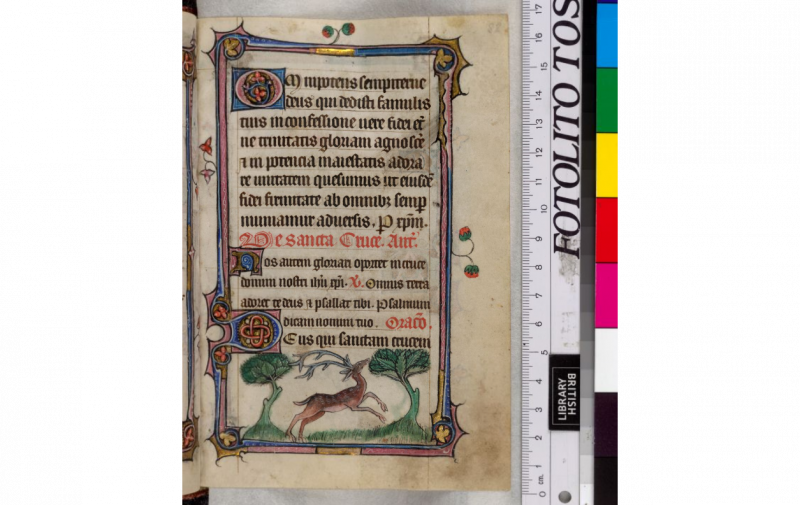 Omnipotens sempiterne
deus qui dedisti famulis
tuis in confessione uere fidei et̄
ne trinitatis gloriam agnosc̄e
⁊ in potencia maiestatis adora
re unitatem quesumus ut eiusdē
fidei firmitate ab omnibꝫ semp̄
muniamur aduersis. P xp̄m.
De sancta Cruce. Ant̄.
Nos autem gloriari oportet in cruce
domini nostri ihū xp̄i. V̄. Omnis terra
adoret te deus ⁊ psallat tibi. Psalmum
dicam nomini tuo. Orac̄o.
Deus qui sanctam crucem
FOTOLITO TOS
BRITISH
LIBRARY
17
16
15
14
13
12
11
10
9
8
7
6
5
4
3
2
1
0 cm.